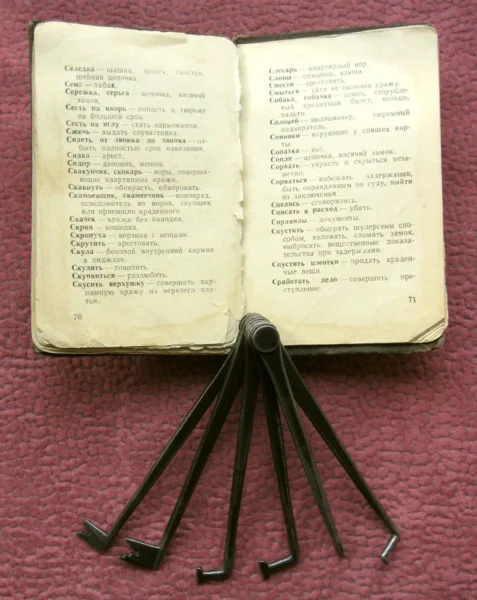 Селедка — шашка, шпага, галстук,
шейная цепочка.
Сено — табак.
Сережка, серьга — цепочка, висячий
замок.
Сесть на якорь — попасть в тюрьму
на большой срок.
Сесть на иглу — стать наркоманом.
Сжечь — выдать соучастника.
Сидеть от звонка до звонка — от-
быть полностью срок наказания.
Сидка — крест.
Сидор — дворник, мешок.
Скакунчик, скокарь — воры, соверша-
ющие квартирные кражи.
Скакнуть — обокрасть, обворовать.
Скамьевщик, скамеечник — конокрад,
осведомитель из воров, скупщик
или приемщик краденого.
Скачок — кража без наводки.
Скрип — кошелка.
Скрипуха — корзина с вещами.
Скрутить — арестовать.
Скула — боковой внутренний карман
в пиджаке.
Скулить — гешить.
Скуповиться — разлюбить.
Скусить верхушку — совершать кар-
манную кражу из верхнего пла-
тья.
70
Слесарь — квартирный вор.
Сломы — отмычки, ключи.
Смести — арестовать.
Смыться — уйти не окончив кражу.
Собака, собачка — замок, сторубле-
вый кредитный билет, кольцо,
пальто.
Соловей — милиционер, тюремный
надзиратель.
Сонники — ворующие у спящих квар-
тиры.
Сопатка — нос.
Сопле — цепочка, висячий замок.
Сорвать — украсть и скрыться неза-
метно.
Сорваться — избежать задержания,
быть оправданным по суду, выйти
из заключения.
Спелись — сговорились.
Списать в расход — убить.
Справилы — документы.
Спустить — обыграть шулерским спо-
собом, взломать, сломать замок,
выбросить вещественные доказа-
тельства при задержании.
Спустить шмотки — продать краден-
ные вещи.
Сработать дело — совершить пре-
ступление.
71